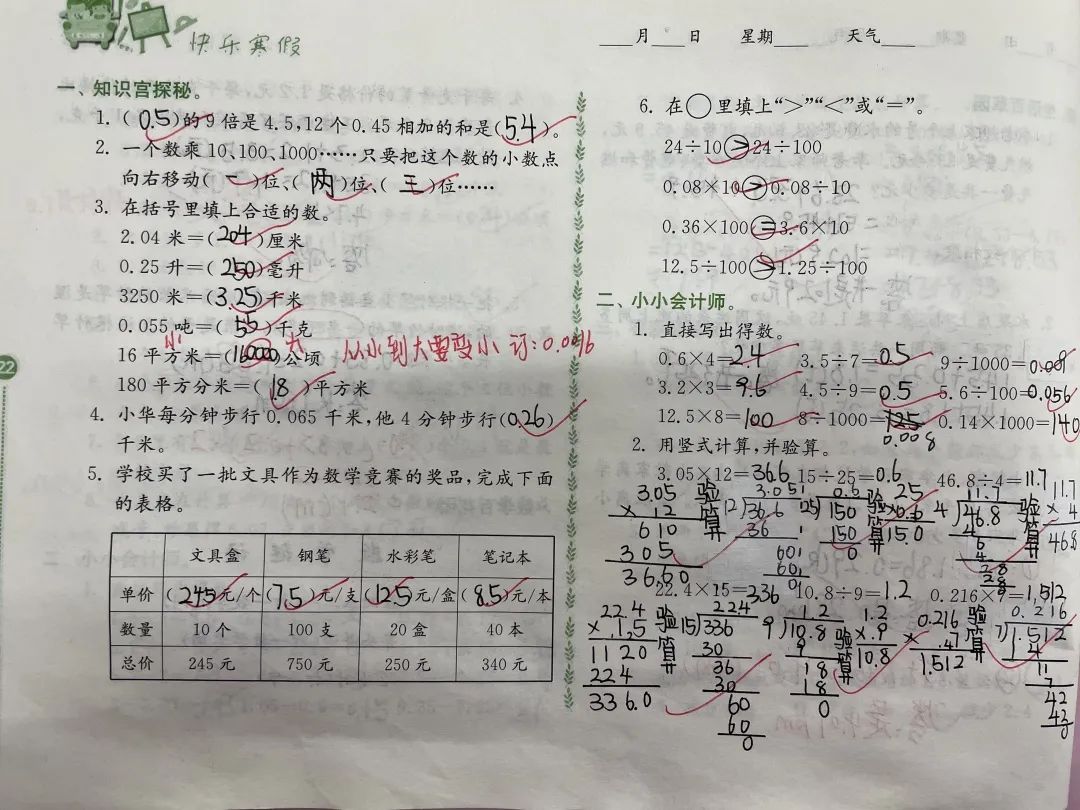 快乐寒假
月 日 星期 天气
一、知识宫探秘。
1. (0.5)的9倍是4.5,12个0.45相加的和是(5.4)。
2. 一个数乘10、100、1000……只要把这个数的小数点
向右移动(一)位、(两)位、(三)位……
3. 在括号里填上合适的数。
2.04米=(204)厘米
0.25升=(250)毫升
3250米=(3.25)千米
0.055吨=(55)千克
小 大
16平方米=( )公顷 从小到大要变小 订:0.0016
180平方分米=(18)平方米
4. 小华每分钟步行0.065千米,他4分钟步行(0.26)
千米。
5. 学校买了一批文具作为数学竞赛的奖品,完成下面
的表格。
文具盒 钢笔 水彩笔 笔记本
单价 (24.5)元/个 (7.5)元/支 (12.5)元/盒 (8.5)元/本
数量 10个 100支 20盒 40本
总价 245元 750元 250元 340元
22
6. 在○里填上“>”“<”或“=”。
24÷10>24÷100
0.08×10>0.08÷10
0.36×100=3.6×10
12.5÷100>1.25÷100
二、小小会计师。
1. 直接写出得数。
0.6×4=2.4 3.5÷7=0.5 9÷1000=
3.2×3=9.6 4.5÷9=0.5 5.6÷100=0.056
12.5×8=100 8÷1000=0.008 0.14×1000=140
2. 用竖式计算,并验算。
3.05×12=36.6 15÷25=0.6 46.8÷4=11.7
3.05 验算 3.051 0.6 25 验算 11.7 验算 11.7
× 12 12 36.6 25 150 ×0.6 4 46.8 × 4
610 36 150 15.0 4 46.8
305 0 6
36.60 601 4
600 28
01 28
0
22.4×15=336 10.8÷9=1.2 0.216×7=1.512
22.4 验算 22.4 1.2 验算 1.2 0.216 验算 0.216
×1.5 15 336 9 10.8 ×.9 × .7 7 1.512
1120 30 9 10.8 1.512 14
224 36 18 11
336.0 30 18 7
60 0 42
60 42
0